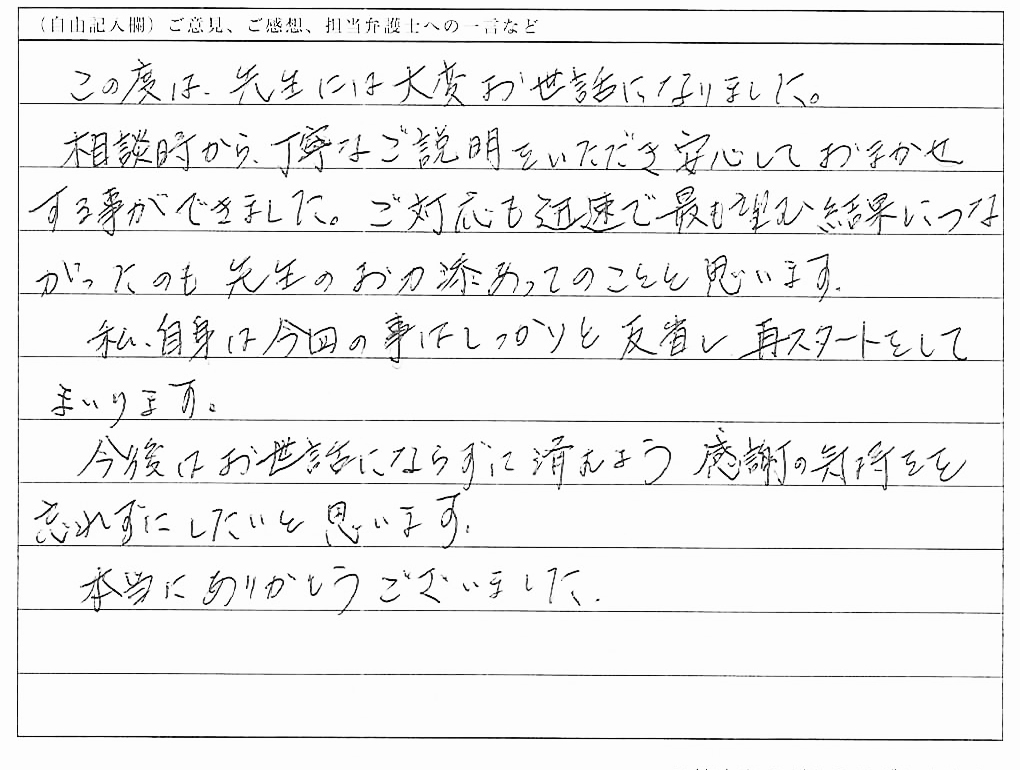 (自由記入欄)ご意見、ご感想、担当弁護士への一言など
この度は、先生には大変お世話になりました。
相談時から、丁寧なご説明をいただき安心しておまかせ
する事ができました。ご対応も迅速で最も望む結果につな
がったのも先生のお力添あってのことと思います。
私、自身は今回の事はしっかりと反省し再スタートをして
まいります。
今後はお世話にならずに済むよう感謝の気持ちを
忘れずにしたいと思います。
本当にありがとうございました。